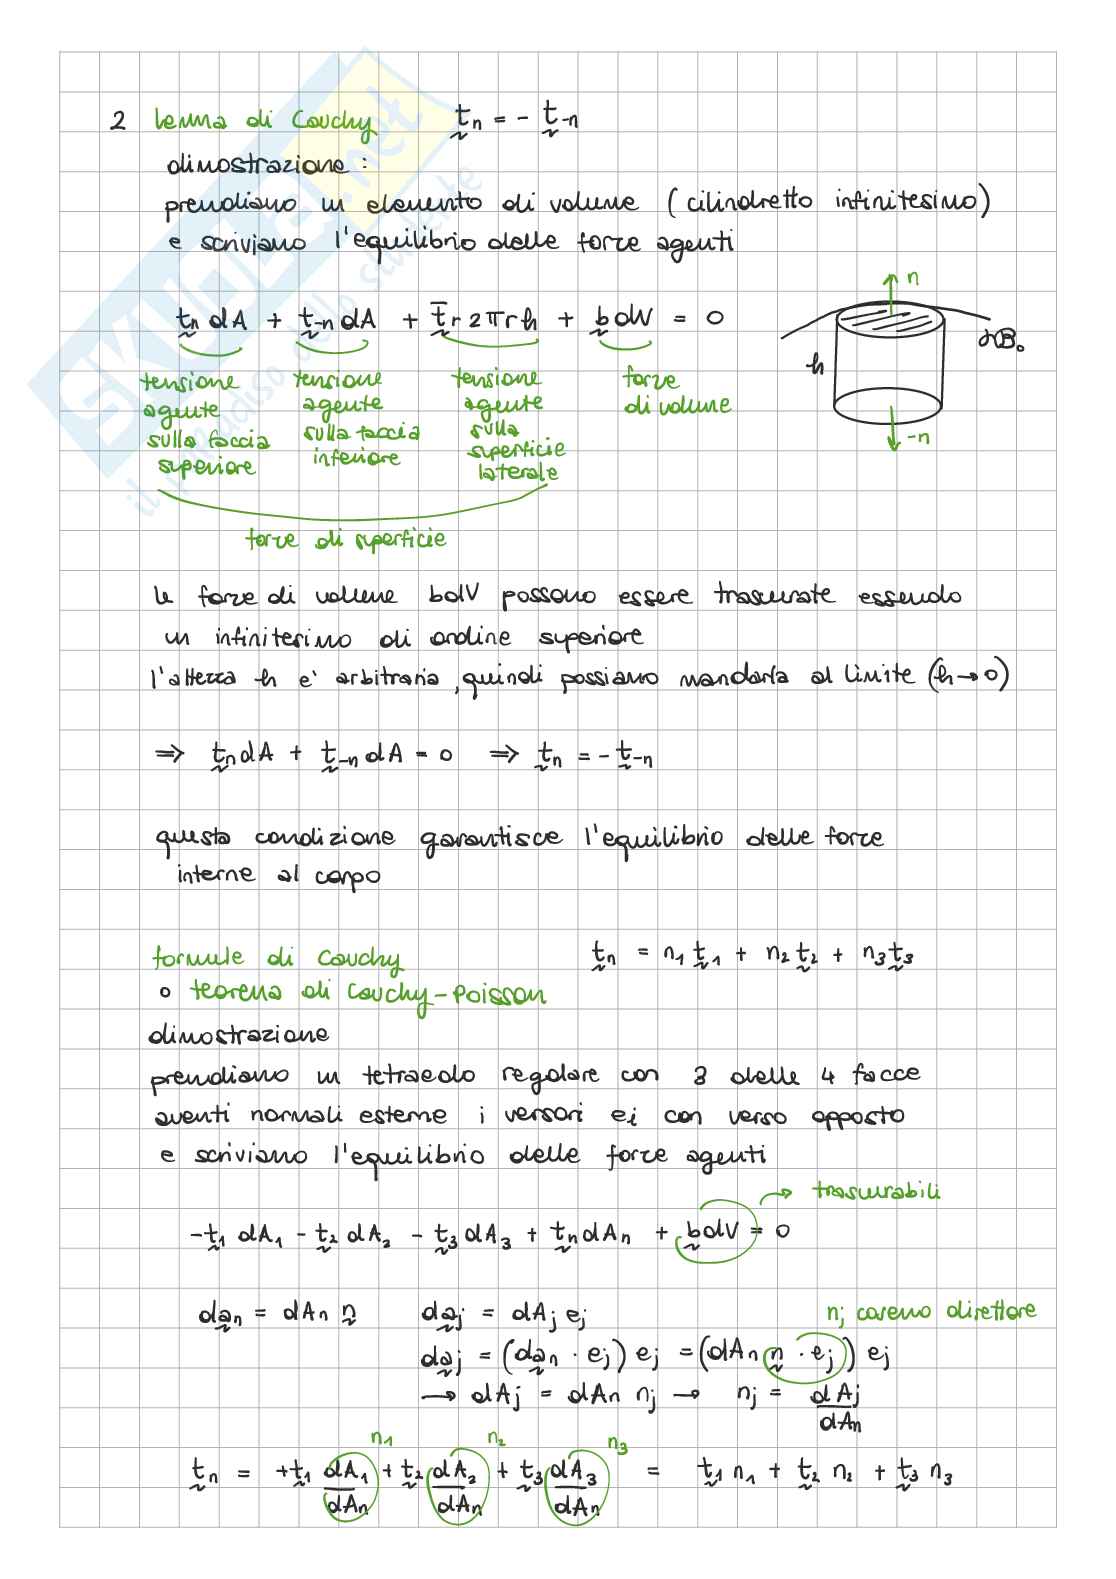 2 lemma di Cauchy t̰n = - t̰-n
dimostrazione :
prendiamo un elemento di volume ( cilindretto infinitesimo )
e scriviamo l'equilibrio delle forze agenti
n
t̰n dA + t̰-n dA + t̄r 2πrh + b̰ dV = 0
∂B₀
h
tensione agente sulla faccia superiore
tensione agente sulla faccia inferiore
tensione agente sulla superficie laterale
forze di volume
-n
forze di superficie
le forze di volume bdV possono essere trascurate essendo
un infinitesimo di ordine superiore
l'altezza h e' arbitraria, quindi possiamo mandarla al limite (h→0)
⇒ t̰n dA + t̰-n dA = 0 ⇒ t̰n = - t̰-n
questa condizione garantisce l'equilibrio delle forze
interne al corpo
formule di Cauchy t̰n = n1 t̰1 + n2 t̰2 + n3 t̰3
o teorema di Cauchy-Poisson
dimostrazione
prendiamo un tetraedo regolare con 3 delle 4 facce
aventi normali esterne i versori ei con verso opposto
e scriviamo l'equilibrio delle forze agenti
trascurabili
-t̰1 dA1 - t̰2 dA2 - t̰3 dA3 + t̰n dAn + b̰dV = 0
da̰n = dAn n̰ da̰j = dAj ej nj coseno direttore
da̰j = (da̰n · ej) ej = (dAn n̰ · ej) ej
→ dAj = dAn nj → nj = dAj/dAn
n1 n2 n3
t̰n = +t̰1 dA1/dAn + t̰2 dA2/dAn + t̰3 dA3/dAn = t̰1 n1 + t̰2 n2 + t̰3 n3
SKUOLA.net
il paradiso dello studente